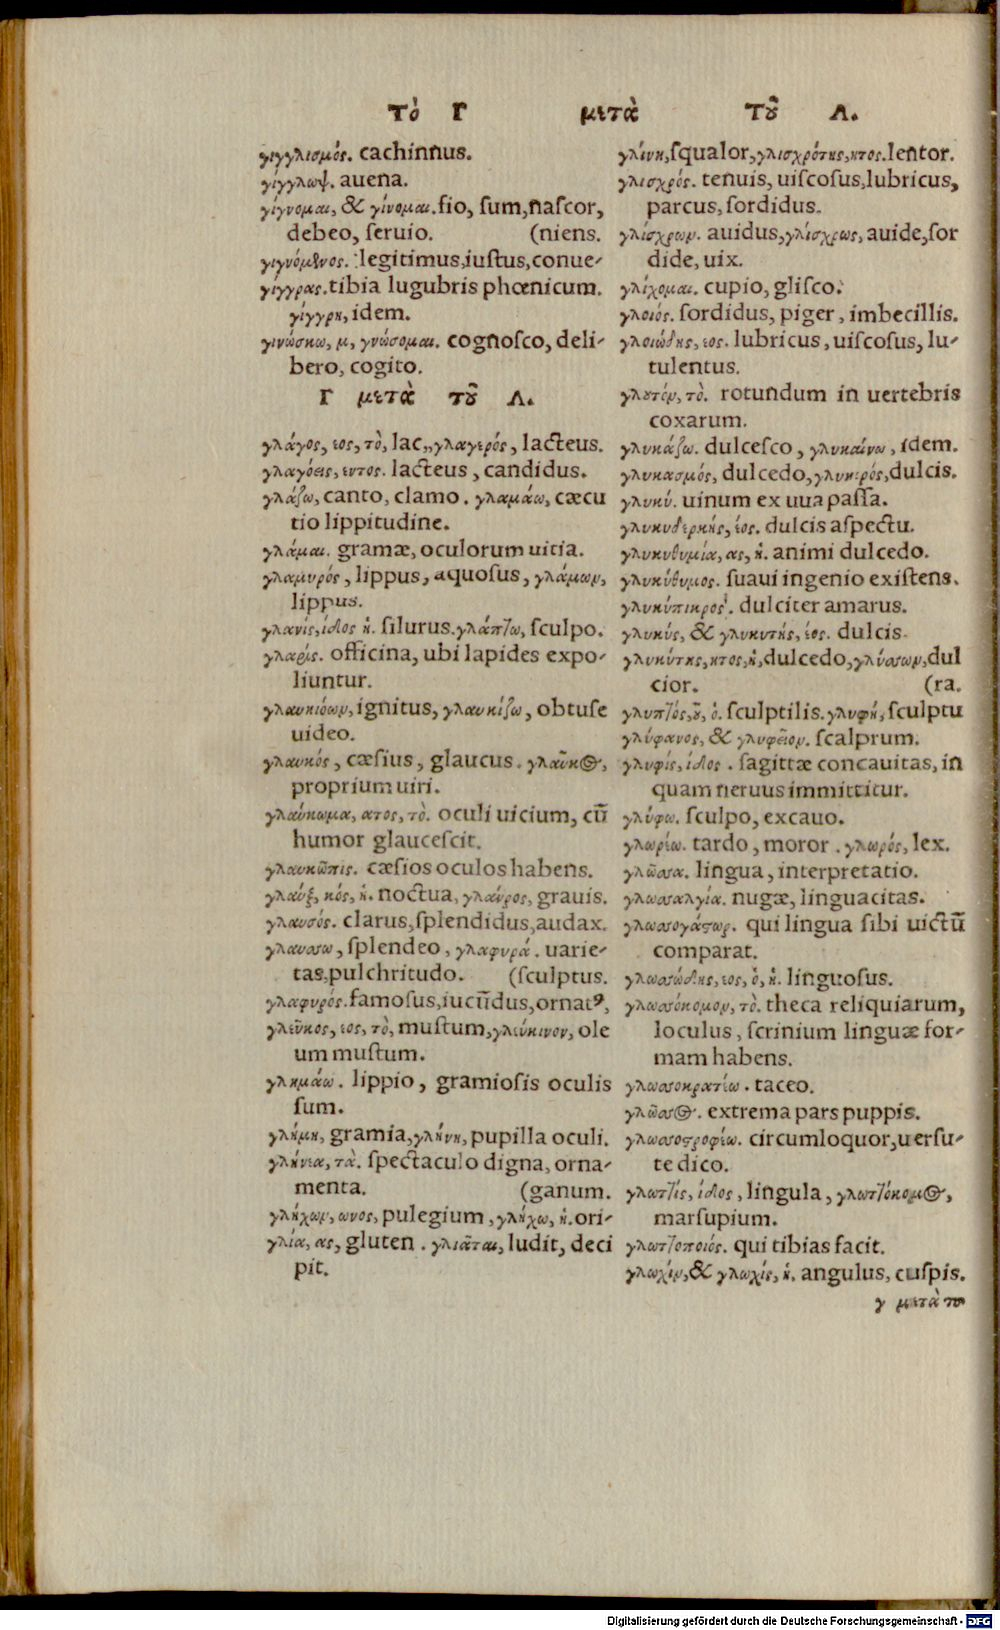 τὸ Γ μετὰ τοῦ Λ.
γιγγλισμός. cachinnus.
γίγγλωψ. auena.
γίγνομαι, & γίνομαι. fio, ſum, naſcor,
debeo, ſeruio. (niens.
γιγνόμενος. legitimus, iuſtus, conue-
γίγγρας. tibia lugubris phœnicum.
γίγγρη, idem.
γινώσκω, μ, γνώσομαι. cognoſco, deli-
bero, cogito.
Γ μετὰ τοῦ Λ.
γλάγος, εος, τὸ, lac, γλαγερός, lacteus.
γλαγόεις, εντος. lacteus, candidus.
γλάζω, canto, clamo. γλαμάω, cæcu
tio lippitudine.
γλάμαι. gramæ, oculorum uitia.
γλαμυρός, lippus, aquoſus, γλάμων,
lippus.
γλανίς, ίδος ἡ. ſilurus. γλάπτω, ſculpo.
γλαρίς. officina, ubi lapides expo-
liuntur.
γλαυκιόων, ignitus, γλαυκίζω, obtuſe
uideo.
γλαυκός, cæſius, glaucus. γλαῦκος,
proprium uiri.
γλαύκωμα, ατος, τὸ. oculi uicium, cū
humor glauceſcit.
γλαυκῶπις. cæſios oculos habens.
γλαύξ, κός, ἡ. noctua, γλαύρος, grauis.
γλαυσός. clarus, ſplendidus, audax.
γλαύσσω, ſplendeo, γλαφυρά. uarie-
tas, pulchritudo. (ſculptus.
γλαφυρός. famoſus, iucūdus, ornatꝰ,
γλεῦκος, εος, τὸ, muſtum, γλεύκινον, ole
um muſtum.
γλημάω. lippio, gramioſis oculis
ſum.
γλήμη, gramia, γλήνη, pupilla oculi.
γλήνεα, τὰ. ſpectaculo digna, orna-
menta. (ganum.
γλήχων, ωνος, pulegium, γλήχω, ἡ. ori-
γλία, ας, gluten. γλιᾶται, ludit, deci
pit.
γλίνη, ſqualor, γλισχρότης, ητος. lentor.
γλισχρός. tenuis, uiſcoſus, lubricus,
parcus, ſordidus.
γλίσχρων. auidus, γλίσχρως, auide, ſor
dide, uix.
γλίχομαι. cupio, gliſco.
γλοιός. ſordidus, piger, imbecillis.
γλοιώδης, εος. lubricus, uiſcoſus, lu-
tulentus.
γλουτόν, τὸ. rotundum in uertebris
coxarum.
γλυκάζω. dulceſco, γλυκαίνω, idem.
γλυκασμός, dulcedo, γλυκερός, dulcis.
γλυκύ. uinum ex uua paſſa.
γλυκυδερκής, έος. dulcis aſpectu.
γλυκυθυμία, ας, ἡ. animi dulcedo.
γλυκύθυμος. ſuaui ingenio exiſtens.
γλυκύπικρος. dulciter amarus.
γλυκύς, & γλυκυτής, έος. dulcis.
γλυκύτης, ητος, ἡ, dulcedo, γλύσσων, dul
cior. (ra.
γλυπτός, οῦ, ὁ. ſculptilis. γλυφή, ſculptu
γλύφανος, & γλυφεῖον. ſcalprum.
γλυφίς, ίδος. ſagittæ concauitas, in
quam neruus immittitur.
γλύφω. ſculpo, excauo.
γλωρέω. tardo, moror. γλωρός, lex.
γλῶσσα. lingua, interpretatio.
γλωσσαλγία. nugæ, linguacitas.
γλωσσογάστωρ. qui lingua ſibi uictū
comparat.
γλωσσώδης, εος, ὁ, ἡ. linguoſus.
γλωσσόκομον, τὸ. theca reliquiarum,
loculus, ſcrinium linguæ for-
mam habens.
γλωσσοκρατέω. taceo.
γλῶσσος. extrema pars puppis.
γλωσσοστροφέω. circumloquor, uerſu-
te dico.
γλωττίς, ίδος, lingula, γλωττόκομος,
marſupium.
γλωττοποιός. qui tibias facit.
γλωχίν, & γλωχίς, ἡ. angulus, cuſpis.
γ μετὰ το
Digitalisierung gefördert durch die Deutsche Forschungsgemeinschaft - DFG